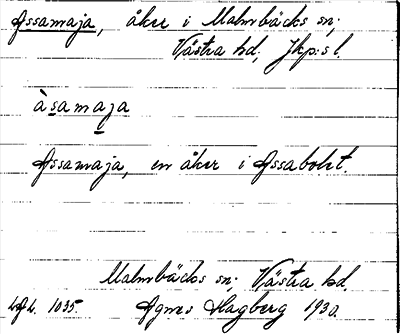 Assamaja, åker i Malmbäcks sn;
Västra hd, Jkp:s l.
àsamaja
Assamaja, en åker i Assabohlt.
Malmbäcks sn; Västra hd
1035. Agnes Hagberg 1930.